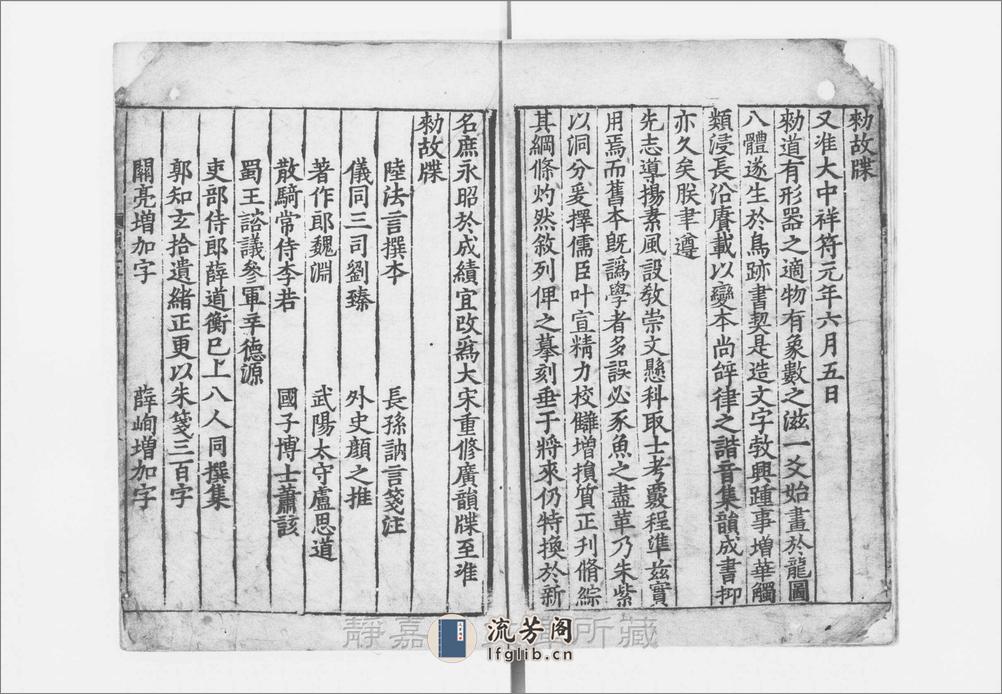 勑故牒
又准大中祥符元年六月五日
勑道有形器之適物有象數之滋一爻始畫於龍圖
八體遂生於鳥跡書契是造文字敦興踵事增華觸
類浸長沿賡載以變本尚辭律之諧音集韻成書抑
亦久矣朕聿遵
先志導揚素風設教崇文懸科取士考覈程準兹實
用焉而舊本既譌學者多誤必豕魚之盡革乃朱紫
以洞分爰擇儒臣叶宣精力校讎增損質正刊脩綜
其綱條灼然敘列俾之摹刻垂于將來仍特換於新
名庶永昭於成績宜改爲大宋重修廣韻牒至准
勑故牒
陸法言撰本 長孫訥言箋注
儀同三司劉臻 外史顏之推
著作郎魏淵 武陽太守盧思道
散騎常侍李若 國子博士蕭該
蜀王諮議參軍辛德源
吏部侍郎薛道衡已上八人同撰集
郭知玄拾遺緒正更以朱箋三百字
關亮增加字 薛峋增加字
靜嘉 所藏
流芳阁
lfglib.cn